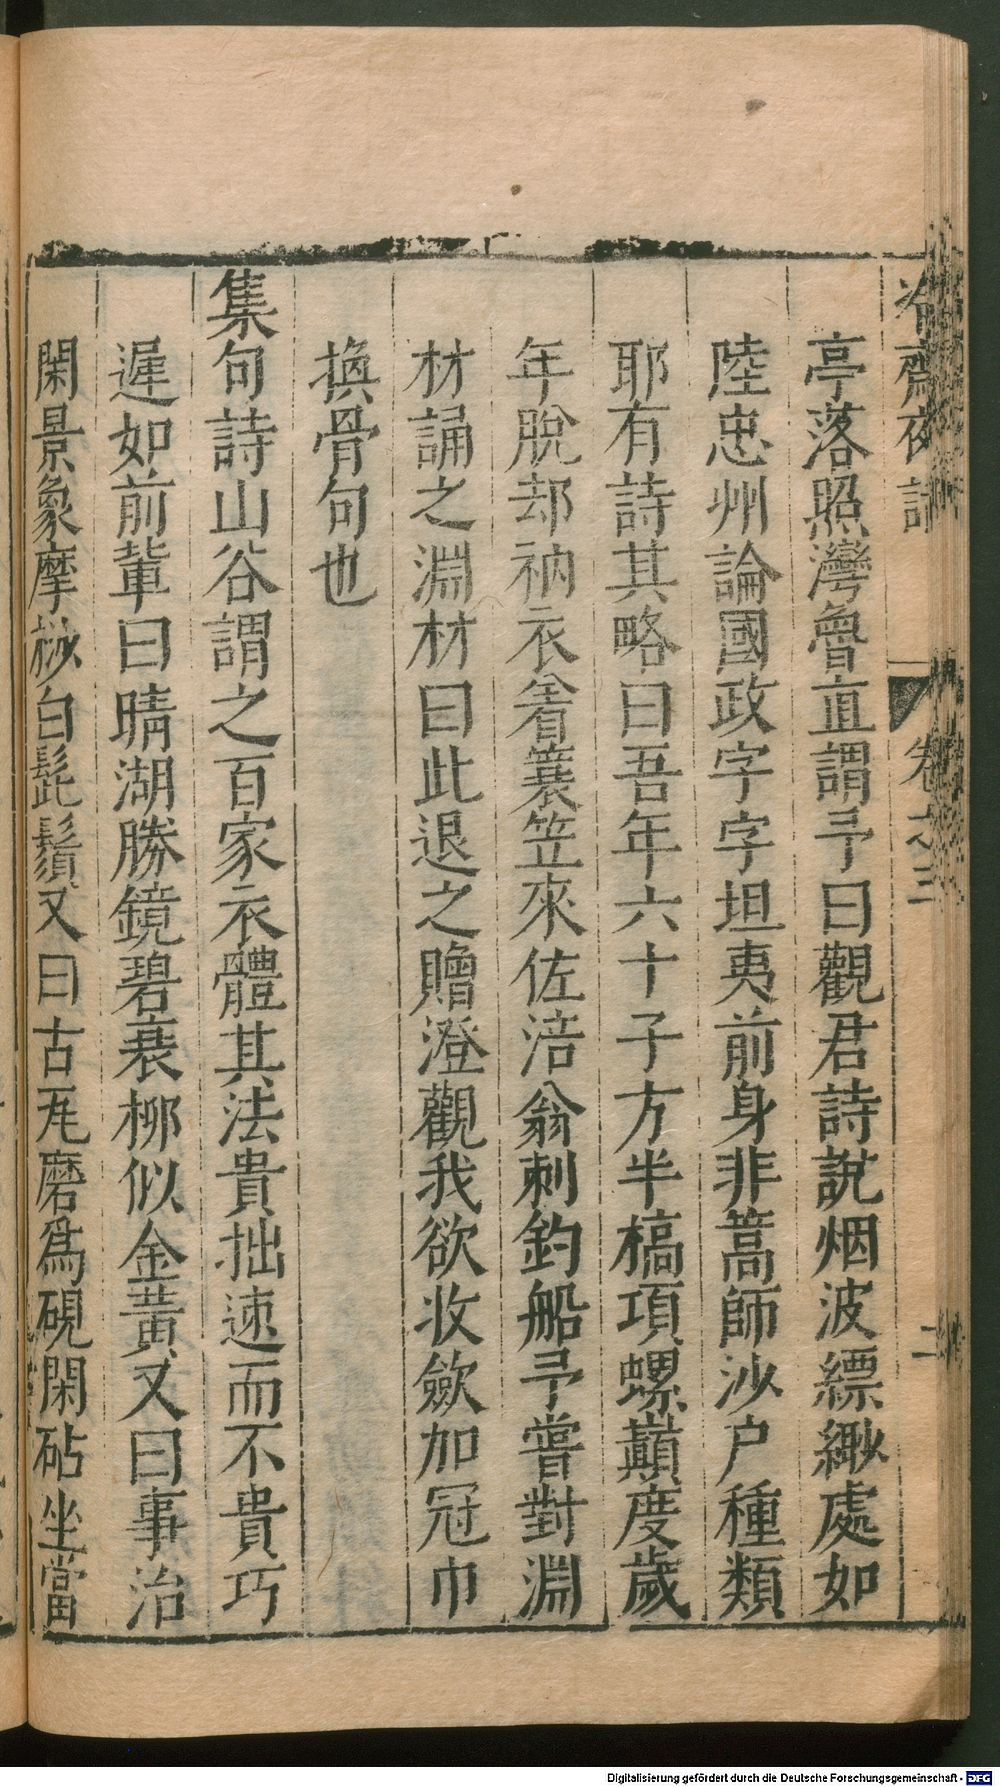 冷齋夜話 卷之三 二
亭落照灣魯直謂予曰觀君詩說烟波縹緲處如
陸忠州論國政字字坦夷前身非篙師沙戶種類
耶有詩其略曰吾年六十子方半槁項螺巔度歲
年脫却衲衣着蓑笠來佐涪翁刺釣船予嘗對淵
材誦之淵材曰此退之贈澄觀我欲收歛加冠巾
換骨句也
集句詩山谷謂之百家衣體其法貴拙速而不貴巧
遲如前輩曰晴湖勝鏡碧衰柳似金黃又曰事治
閑景象摩挱白髭鬚又曰古瓦磨爲硯閑砧坐當
Digitalisierung gefördert durch die Deutsche Forschungsgemeinschaft - DFG